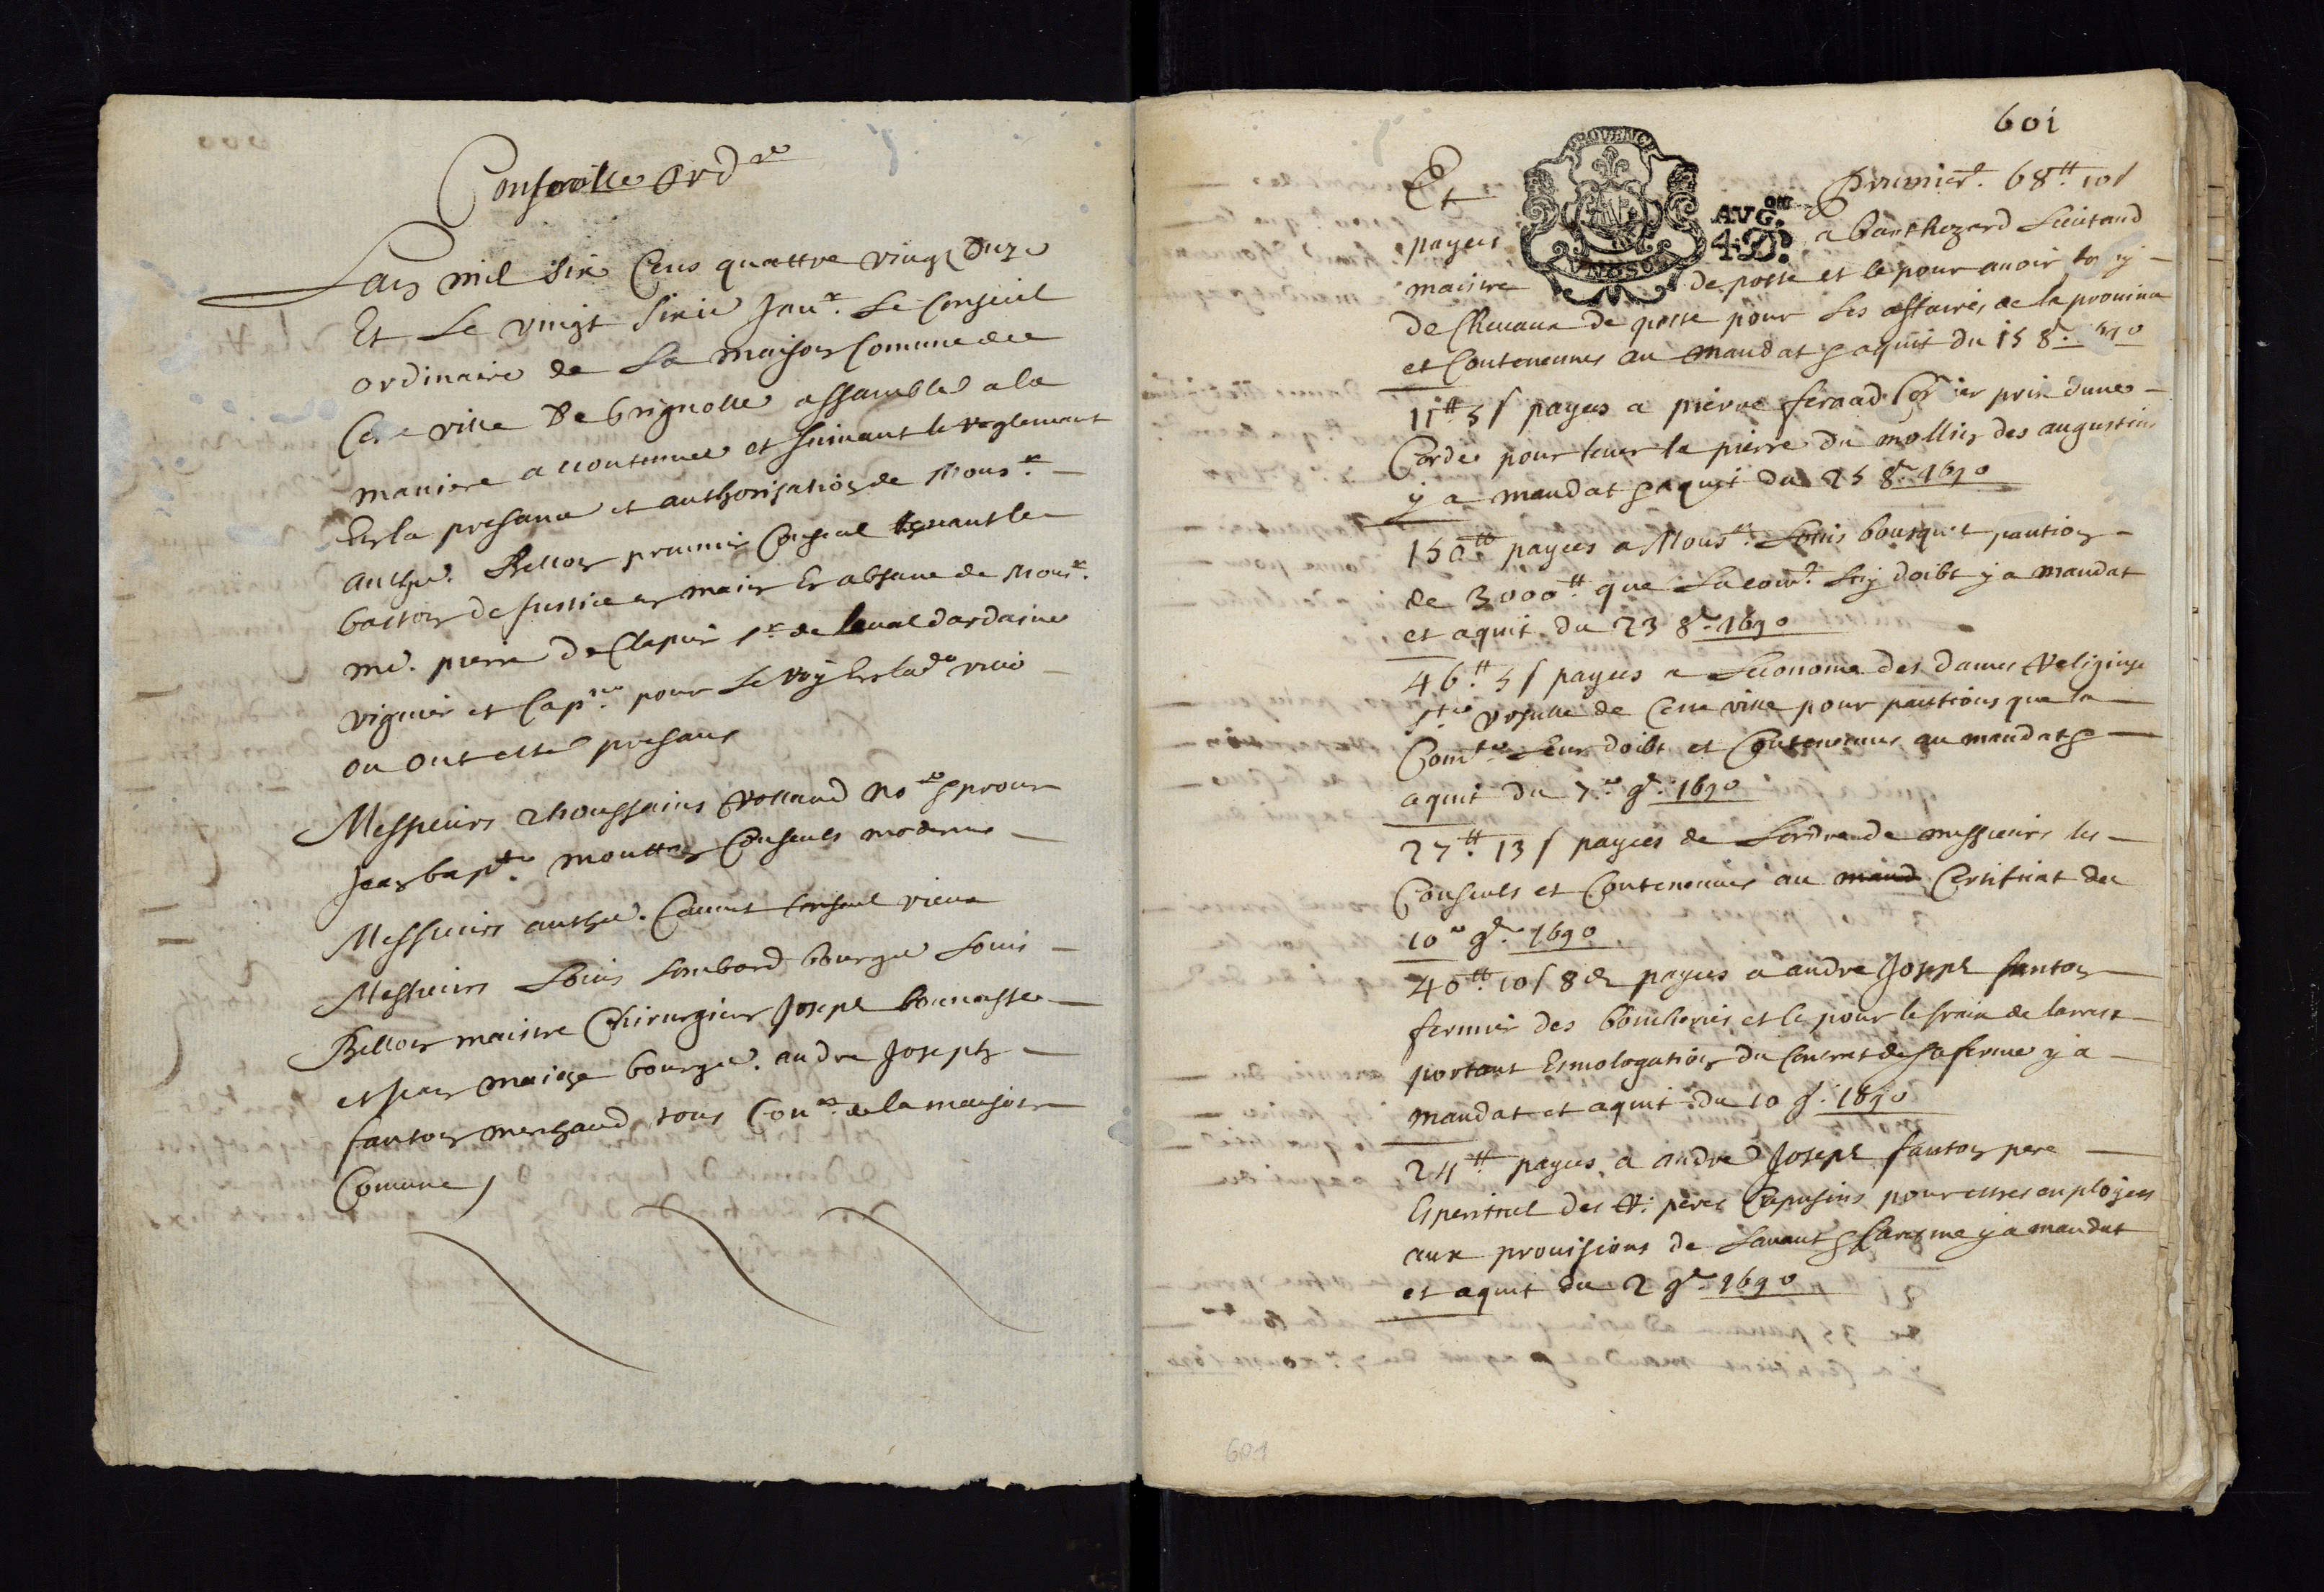 Conseil Ordre
Lan mil six cens quattre vingt onze
Et le vingt sixie Janr. le Conseil
ordinaire de la maison Comune de
Ceste ville de brignolle assamblé a la
maniere acoutumee et suivant le reglement
En la presance et authorisation de Monsr.
anthe. Bellon premier Consul tenant le
baston de Justice en main En absance de Monsr.
me. pierre de Clapier sr. de laval dardaine
viguier et Capne. pour le Roy En lade. ville
ou ont esté presans
Messieurs thoussains Rolland nore & procur
Jean bapte. moutton Consuls modernes
Messieurs anthe. Consul vieux
Messieurs Louis Lombard bourge Louis
Bellon maistre Chirurgien Joseph bonnasse
et Jean bourge. andre Joseph
fanton merchand tous Conrs. de la maison
Comune
601
Et premiert. 68tt 10s
PROVENCE
AVGon
4.D.
payees a barthezard Lieutaud
maistre de poste et ce pour avoir
de Chevaux de poste pour les affaires de la province
et Contenenues au mandat & aquit du 15 8e. 1690
11tt 5s payees a pierre feraud pour prix dune
Corde pour lever la pierre du mollin des augustins
y a mandat & aquit du 25 8e. 1690
150tt payees a Monsr. Louis bousquet pantion
de 3000tt que la comte. luy doibt y a mandat
et aquit du 23 8e. 1690
46tt 5s payees a Leconome des dames Religiuse
ste ursulle de Ceste ville pour pantions que la
Comte. leur doibt et Contenenues au mandat &
aquit du 7e 9e. 1690
27tt 13s payees de Lordre de messieurs les
Consuls et Contenenues au mand Certificat du
10e 9e. 1690
40tt 10s 8d payees a andre Joseph fanton
fermier des boucheries et ce pour le frais de larrest
portant Esmologation du Contrat de sa ferme y a
mandat et aquit du 10 9e. 1690
24tt payees a andre Joseph fanton pere
Esperituel des R. peres Capusins pour estres employees
aux provisions de Lavant & Caresme y a mandat
et aquit du 2 9e. 1690
601